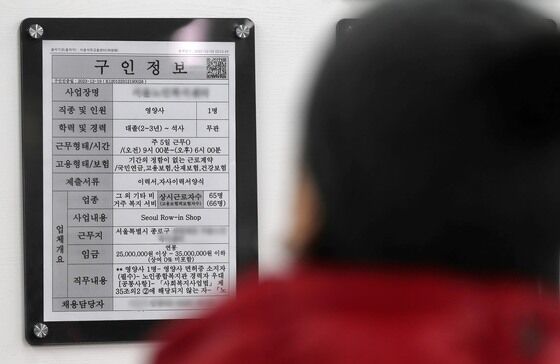 구인정보
사업장명
직종 및 인원 영양사 1명
학력 및 경력 대졸(2~3년) ~ 석사 무관
근무형태/시간 주 5일 근무O
/(오전) 9시 00분~(오후) 6시 00분
고용형태/보험 기간의 정함이 없는 근로계약
/국민연금,고용보험,산재보험,건강보험
제출서류 이력서,자사이력서양식
업체개요
업종 그 외 기타 비거주 복지 서비 상시근로자수 65명 (66명)
사업내용 Seoul Row-in Shop
근무지 서울특별시 종로구
임금 연봉
25,000,000원 이상 ~ 35,000,000원 이하
(상여 0% 미포함)
직무내용 ** 영양사 1명- 영양사 면허증 소지자
(필수)- 노인종합복지관 경력자 우대
[공통사항]- 「사회복지사업법」 제
35조의2 ②에 해당되지 않는 자- 「노
채용담당자